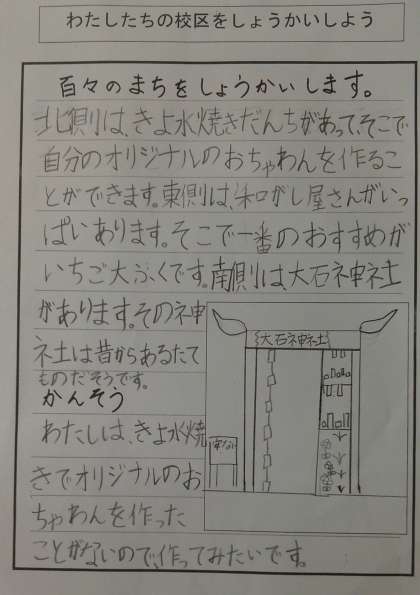 わたしたちの校区をしょうかいしよう
百々のまちをしょうかいします。
北側は、きよ水焼きだんちがあって、そこで
自分のオリジナルのおちゃわんを作るこ
とができます。東側は、和がし屋さんがいっ
ぱいあります。そこで一番のおすすめが
いちご大ふくです。南側は、大石神社
があります。その神
社は昔からあるたて
ものだそうです。
かんそう
わたしは、きよ水焼
きでオリジナルのお
ちゃわんを作った
ことがないので、作ってみたいです。
大石神社